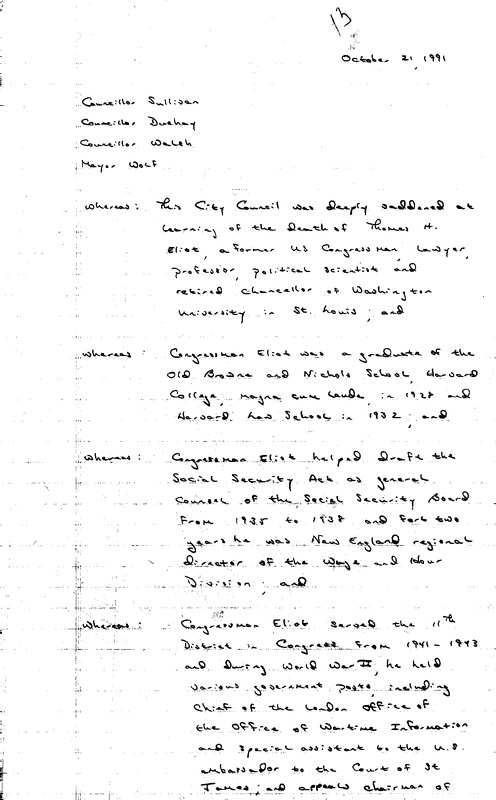 13
October 21, 1991
Councillor Sullivan
Councillor Duehay
Councillor Walsh
Mayor Wolf
whereas: This City Council was deeply saddened at
learning of the death of Thomas H.
Eliot, a former US Congressman, lawyer,
professor, political scientist and
retired chancellor of Washington
University in St. Louis; and
whereas: Congressman Eliot was a graduate of the
Old Browne and Nichols School, Harvard
College, magna cum laude, in 1928 and
Harvard Law School in 1932; and
whereas: Congressman Eliot helped draft the
Social Security Act as general
counsel of the Social Security Board
from 1935 to 1938 and fort two
years he was New England regional
director of the Wage and Hour
Division; and
Whereas: Congressman Eliot served the 11th
District in Congress from 1941-1943
and during World War II, he held
various government posts, including
Chief of the London Office of
the Office of Wartime Information
and special assistant to the U.S.
ambassador to the Court of St
James; and appeals chairman of